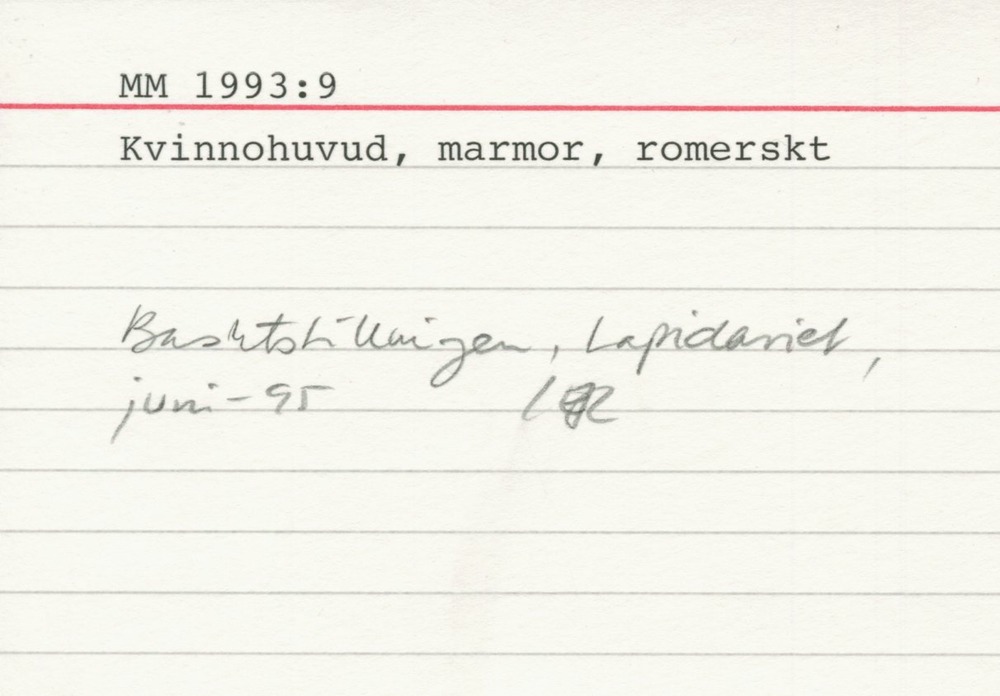 MM 1993:9
Kvinnohuvud, marmor, romerskt
Basutställningen, Lapidariet,
juni-95